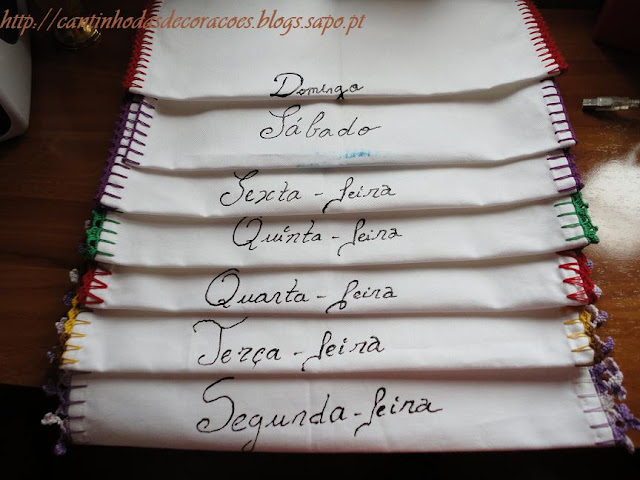 http://cantinhodasdecoracoes.blogs.sapo.pt
Domingo
Sábado
Sexta-feira
Quinta-feira
Quarta-feira
Terça-feira
Segunda-feira